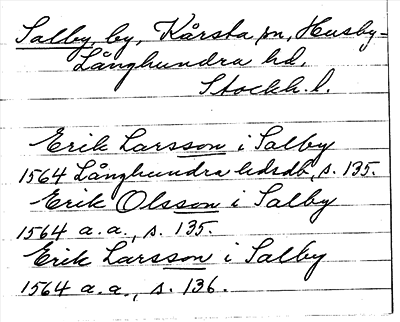 Salby, by, Kårsta sn, Husby-
Långhundra hd,
Stockh. l.
Erik Larsson i Salby
1564 Långhundra hdsdb, s. 135.
Erik Olsson i Salby
1564 a. a., s. 135.
Erik Larsson i Salby
1564 a. a., s. 136.